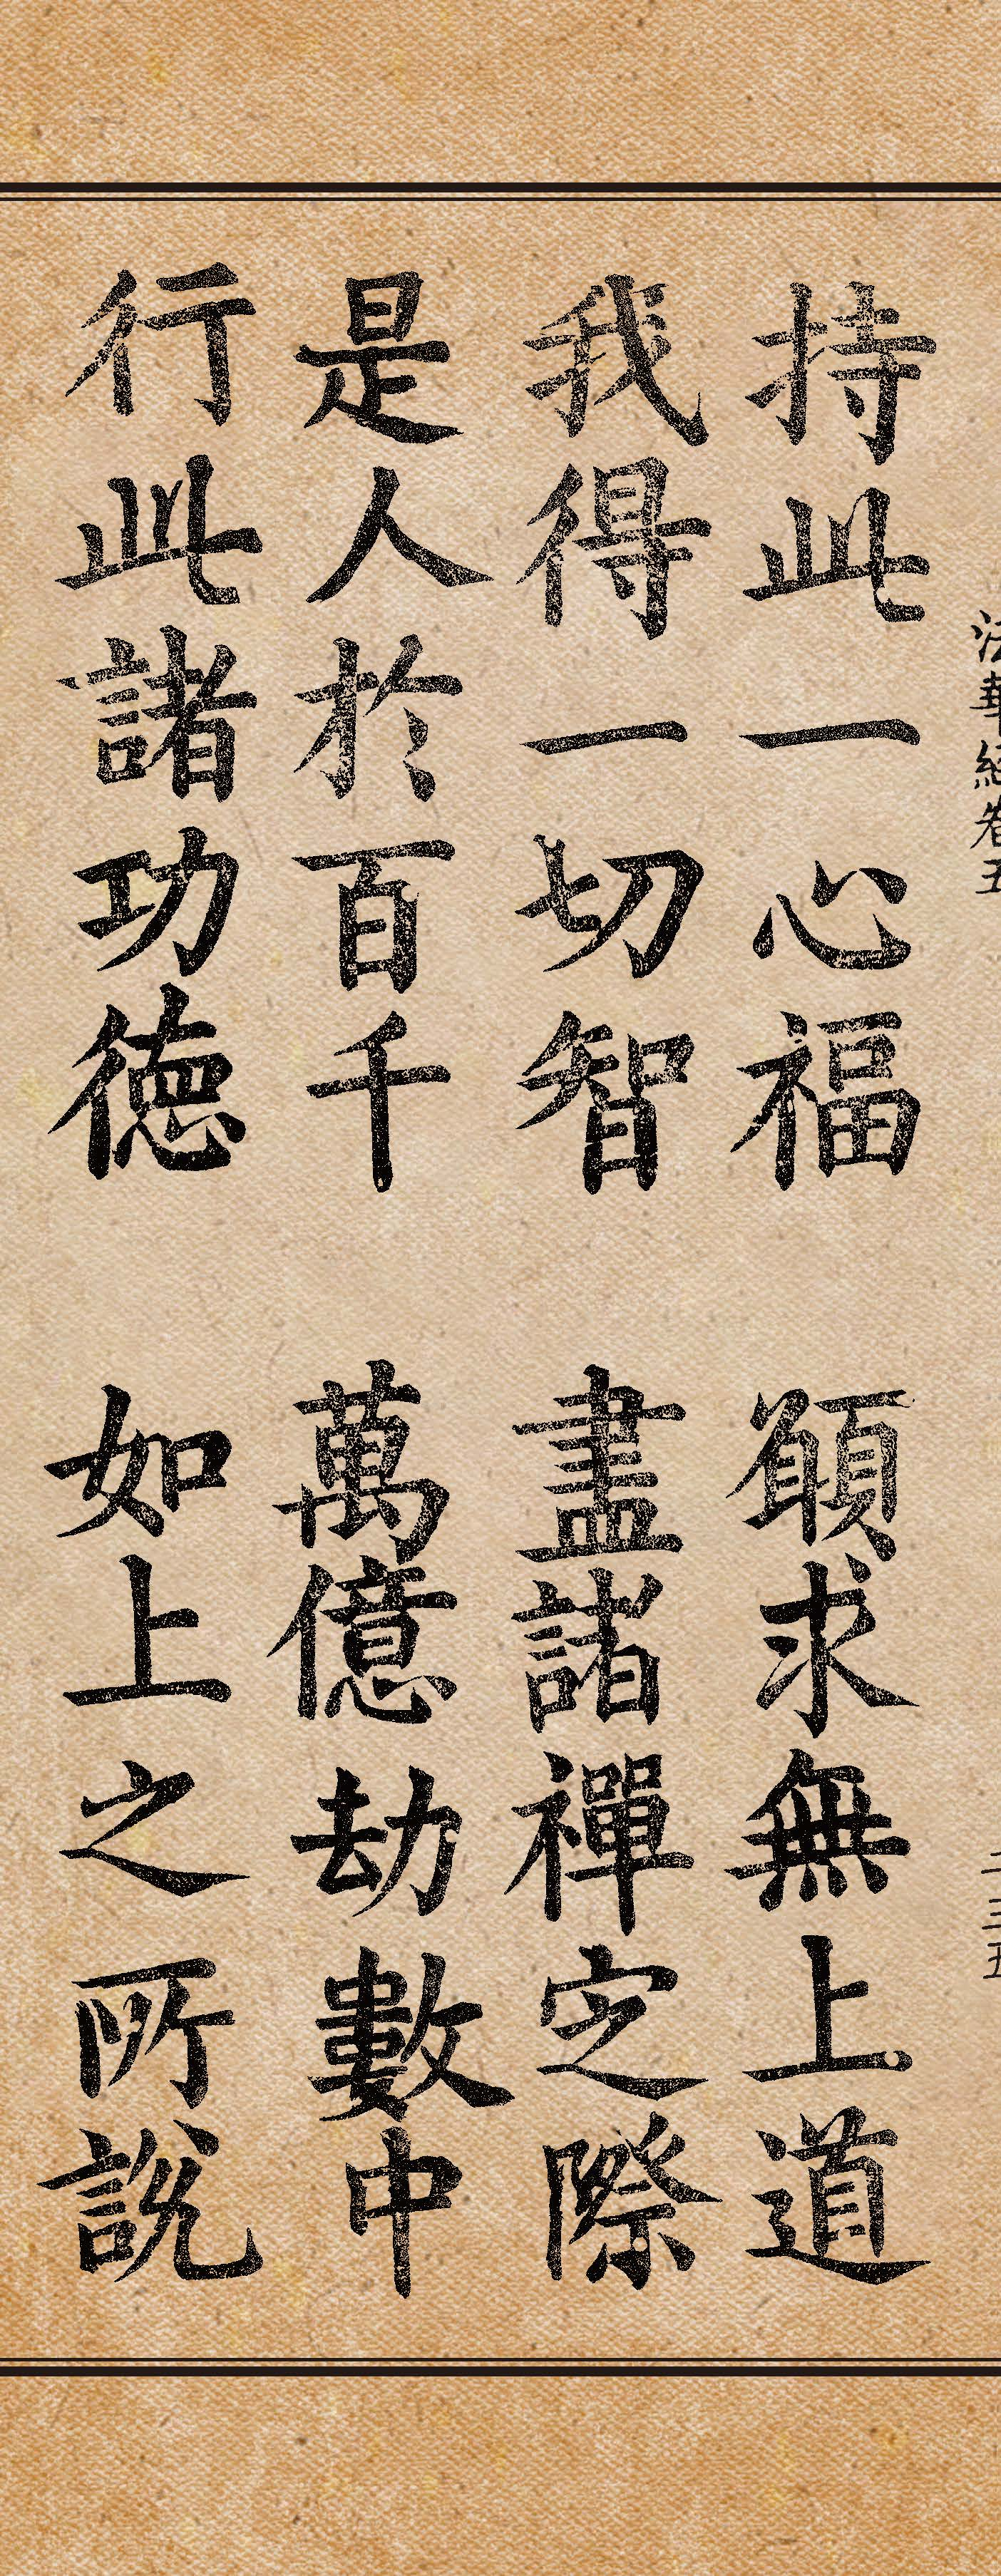 法華經卷五
持此一心福 願求無上道
我得一切智 盡諸禪㝎際
是人於百千 萬億劫數中
行此諸功徳 如上之所說